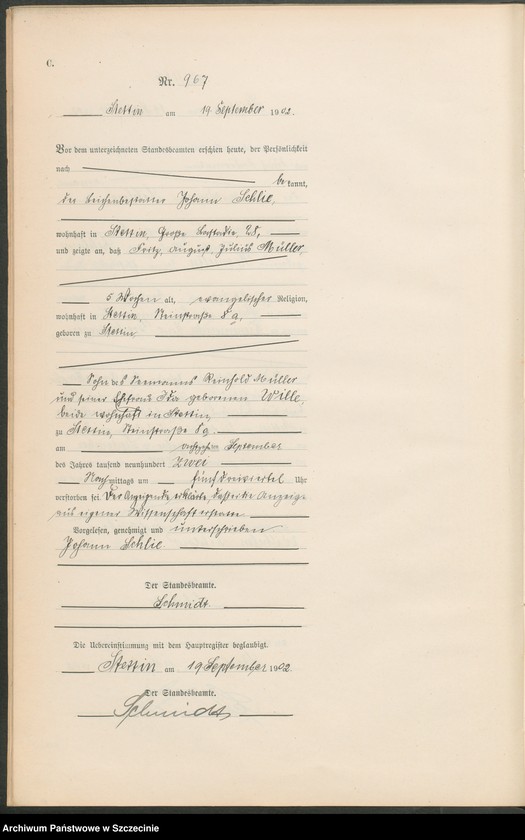 C.
Nr. 967
Stettin am 19 September 1902.
Vor dem unterzeichneten Standesbeamten erschien heute, der Persönlichkeit
nach
bekannt,
der Leichenbestatter Johann Schlie,
wohnhaft in Stettin, Große Lastadie 28,
und zeigte an, daß Fritz, August, Julius Müller,
5 Wochen alt, evangelischer Religion,
wohnhaft in Stettin, Steinstraße 8 a,
geboren zu Stettin,
Sohn des Seemanns Reinhold Müller
und seiner Ehefrau Ida geborenen Wille,
beide wohnhaft in Stettin,
zu Stettin, Steinstraße 8 a,
am achtzehn September
des Jahres tausend neunhundert zwei
Nachmittags um fünf dreiviertel Uhr
verstorben sei. Der Anzeigende erklärte, dass er die Anzeige
aus eigener Wissenschaft erstatte.
Vorgelesen, genehmigt und unterschrieben
Johann Schlie
Der Standesbeamte.
Schmidt.
Die Uebereinstimmung mit dem Hauptregister beglaubigt.
Stettin am 19 September 1902.
Der Standesbeamte.
Schmidt
Archiwum Państwowe w Szczecinie